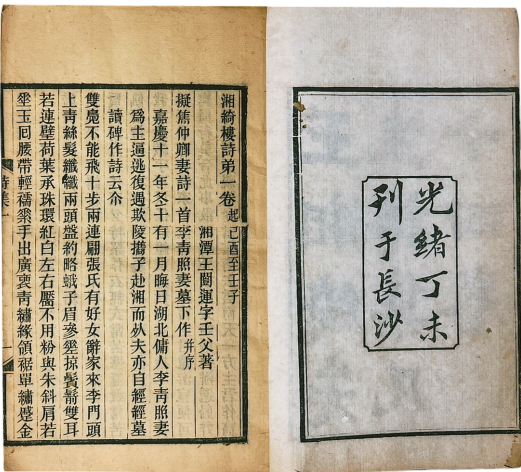 光緒丁未
刊于長沙
湘綺樓詩弟一卷 起己酉至壬子
湘潭王闓運字壬父著
擬焦仲卿妻詩一首李青照妻墓下作 并序
嘉慶十一年冬十有一月晦日湖北傭人李青照妻
爲主逼逃復遇欺陵攜子赴湘而夫亦自經經墓
讀碑作詩云尒
雙鳧不能飛十步兩連翩張氏有好女辭家來李門頭
上青絲髮纖纖兩頭盤約略蛾子眉參掠鬢雙耳
若連璧荷葉承珠環紅白左右靨不用粉與朱斜肩若
玉囘腰帶輕襦手出廣褎青繡緣領裾單繡蹙金
詩集一